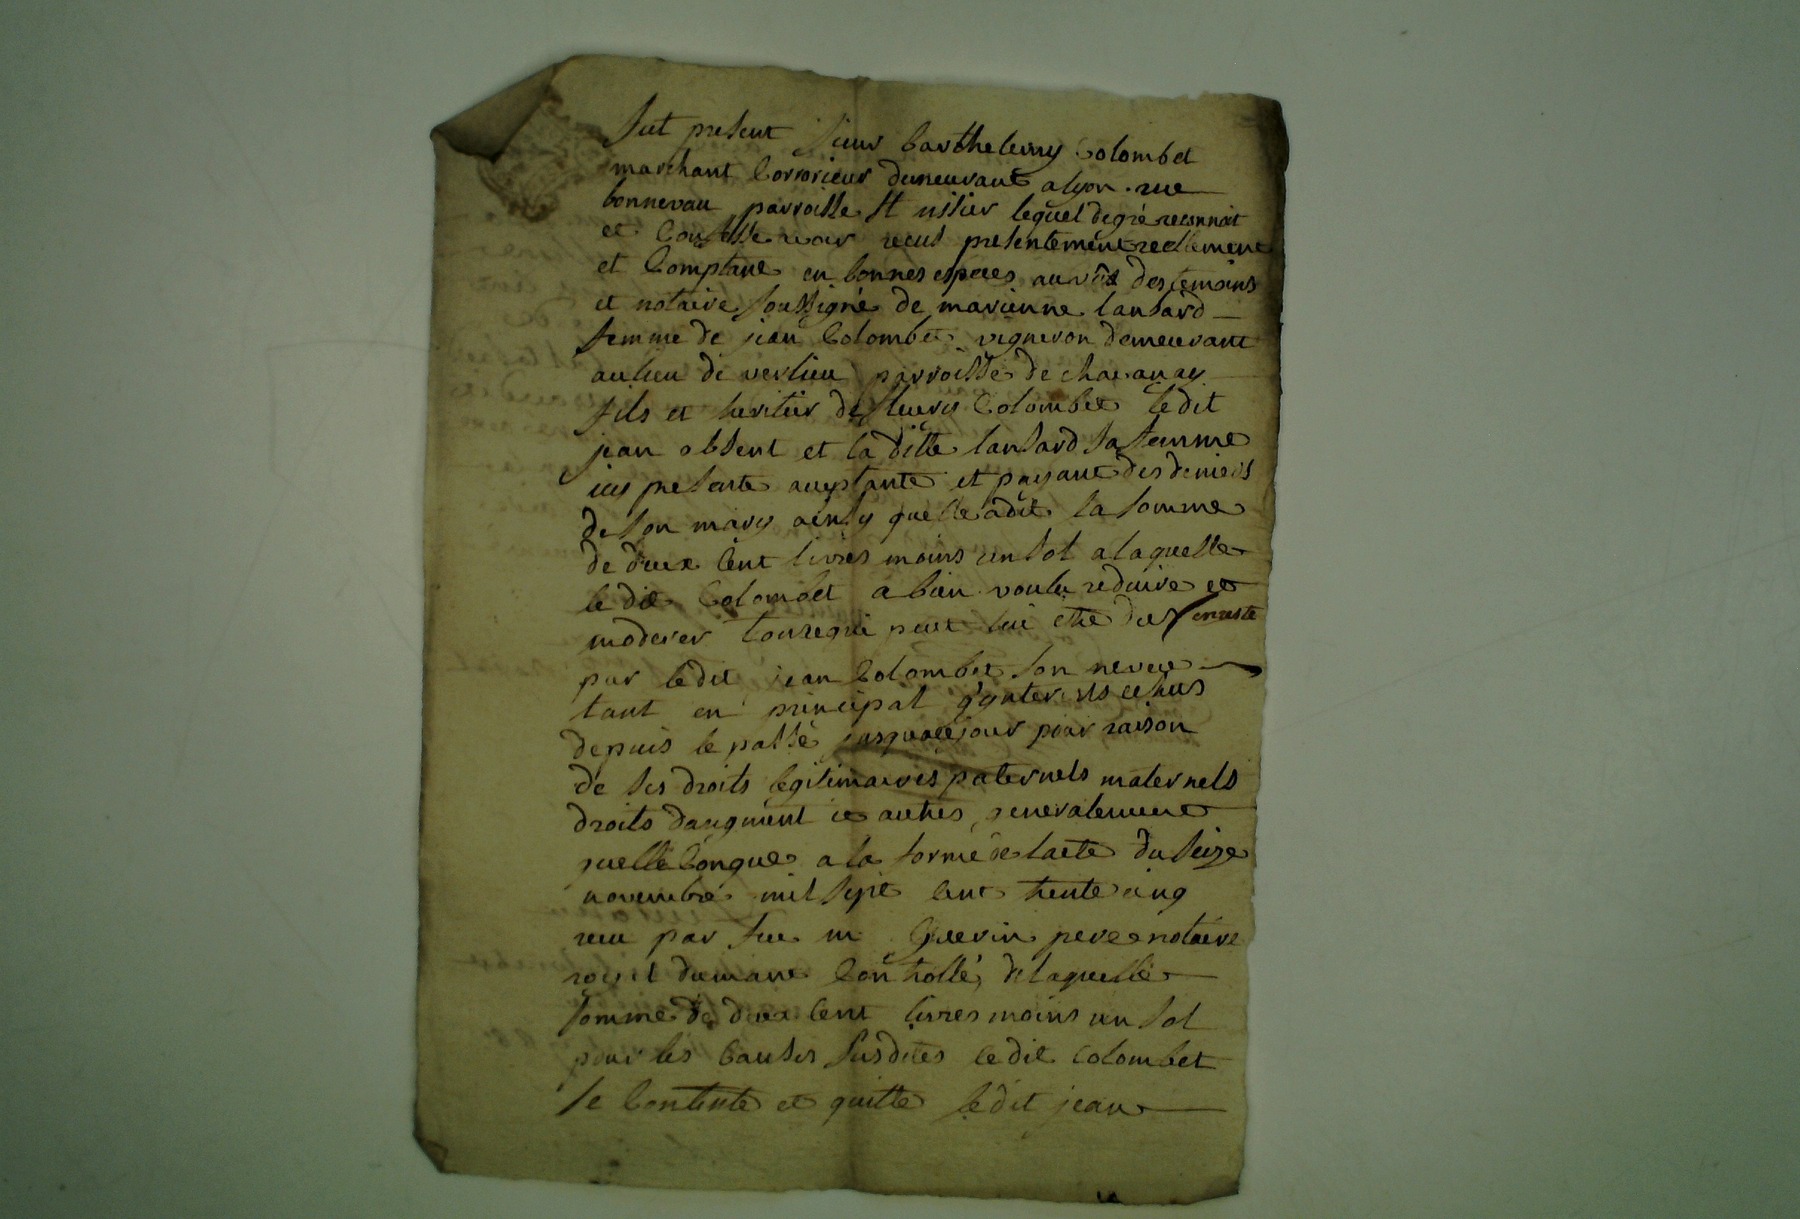 fut present sieur barthelemy Colombet
marchant Corroyeur demeurant a lyon rue
bonnevau parroisse st nisier lequel de gré reconnoit
et Confesse avoir recus presentement reellement
et Comptant en bonnes especes au vûe des temoins
et notaire soussigné de marienne lansard
femme de jean Colombet vigneron demeurant
au lieu de verlieu parroisse de chavanay
fils et heritier de fleury Colombet ledit
jean absent et la ditte lansard sa femme
icy presente aceptante et payant des deniers
de son mary ainsy quelle a dit la somme
de deux Cent livres moins un sol a laquelle
le dit Colombet a bien voulu reduire et
moderer tout ce qui peut lui etre du en reste
par ledit jean Colombet son neveu
tant en principal qynterets echus
depuis le passé jusqua ce jour pour raison
de ses droits legitimaires paternels maternels
droits daugment et autres generalement
quelleConques a la forme de lacte du seize
novembre mil sept Cent trente cinq
recu par feu m Guerin pere notaire
royal dument Controllé, de laquelle
somme de deux Cent livres moins un sol
pour les Causes susdites ledit Colombet
se Contente et quitte ledit jean